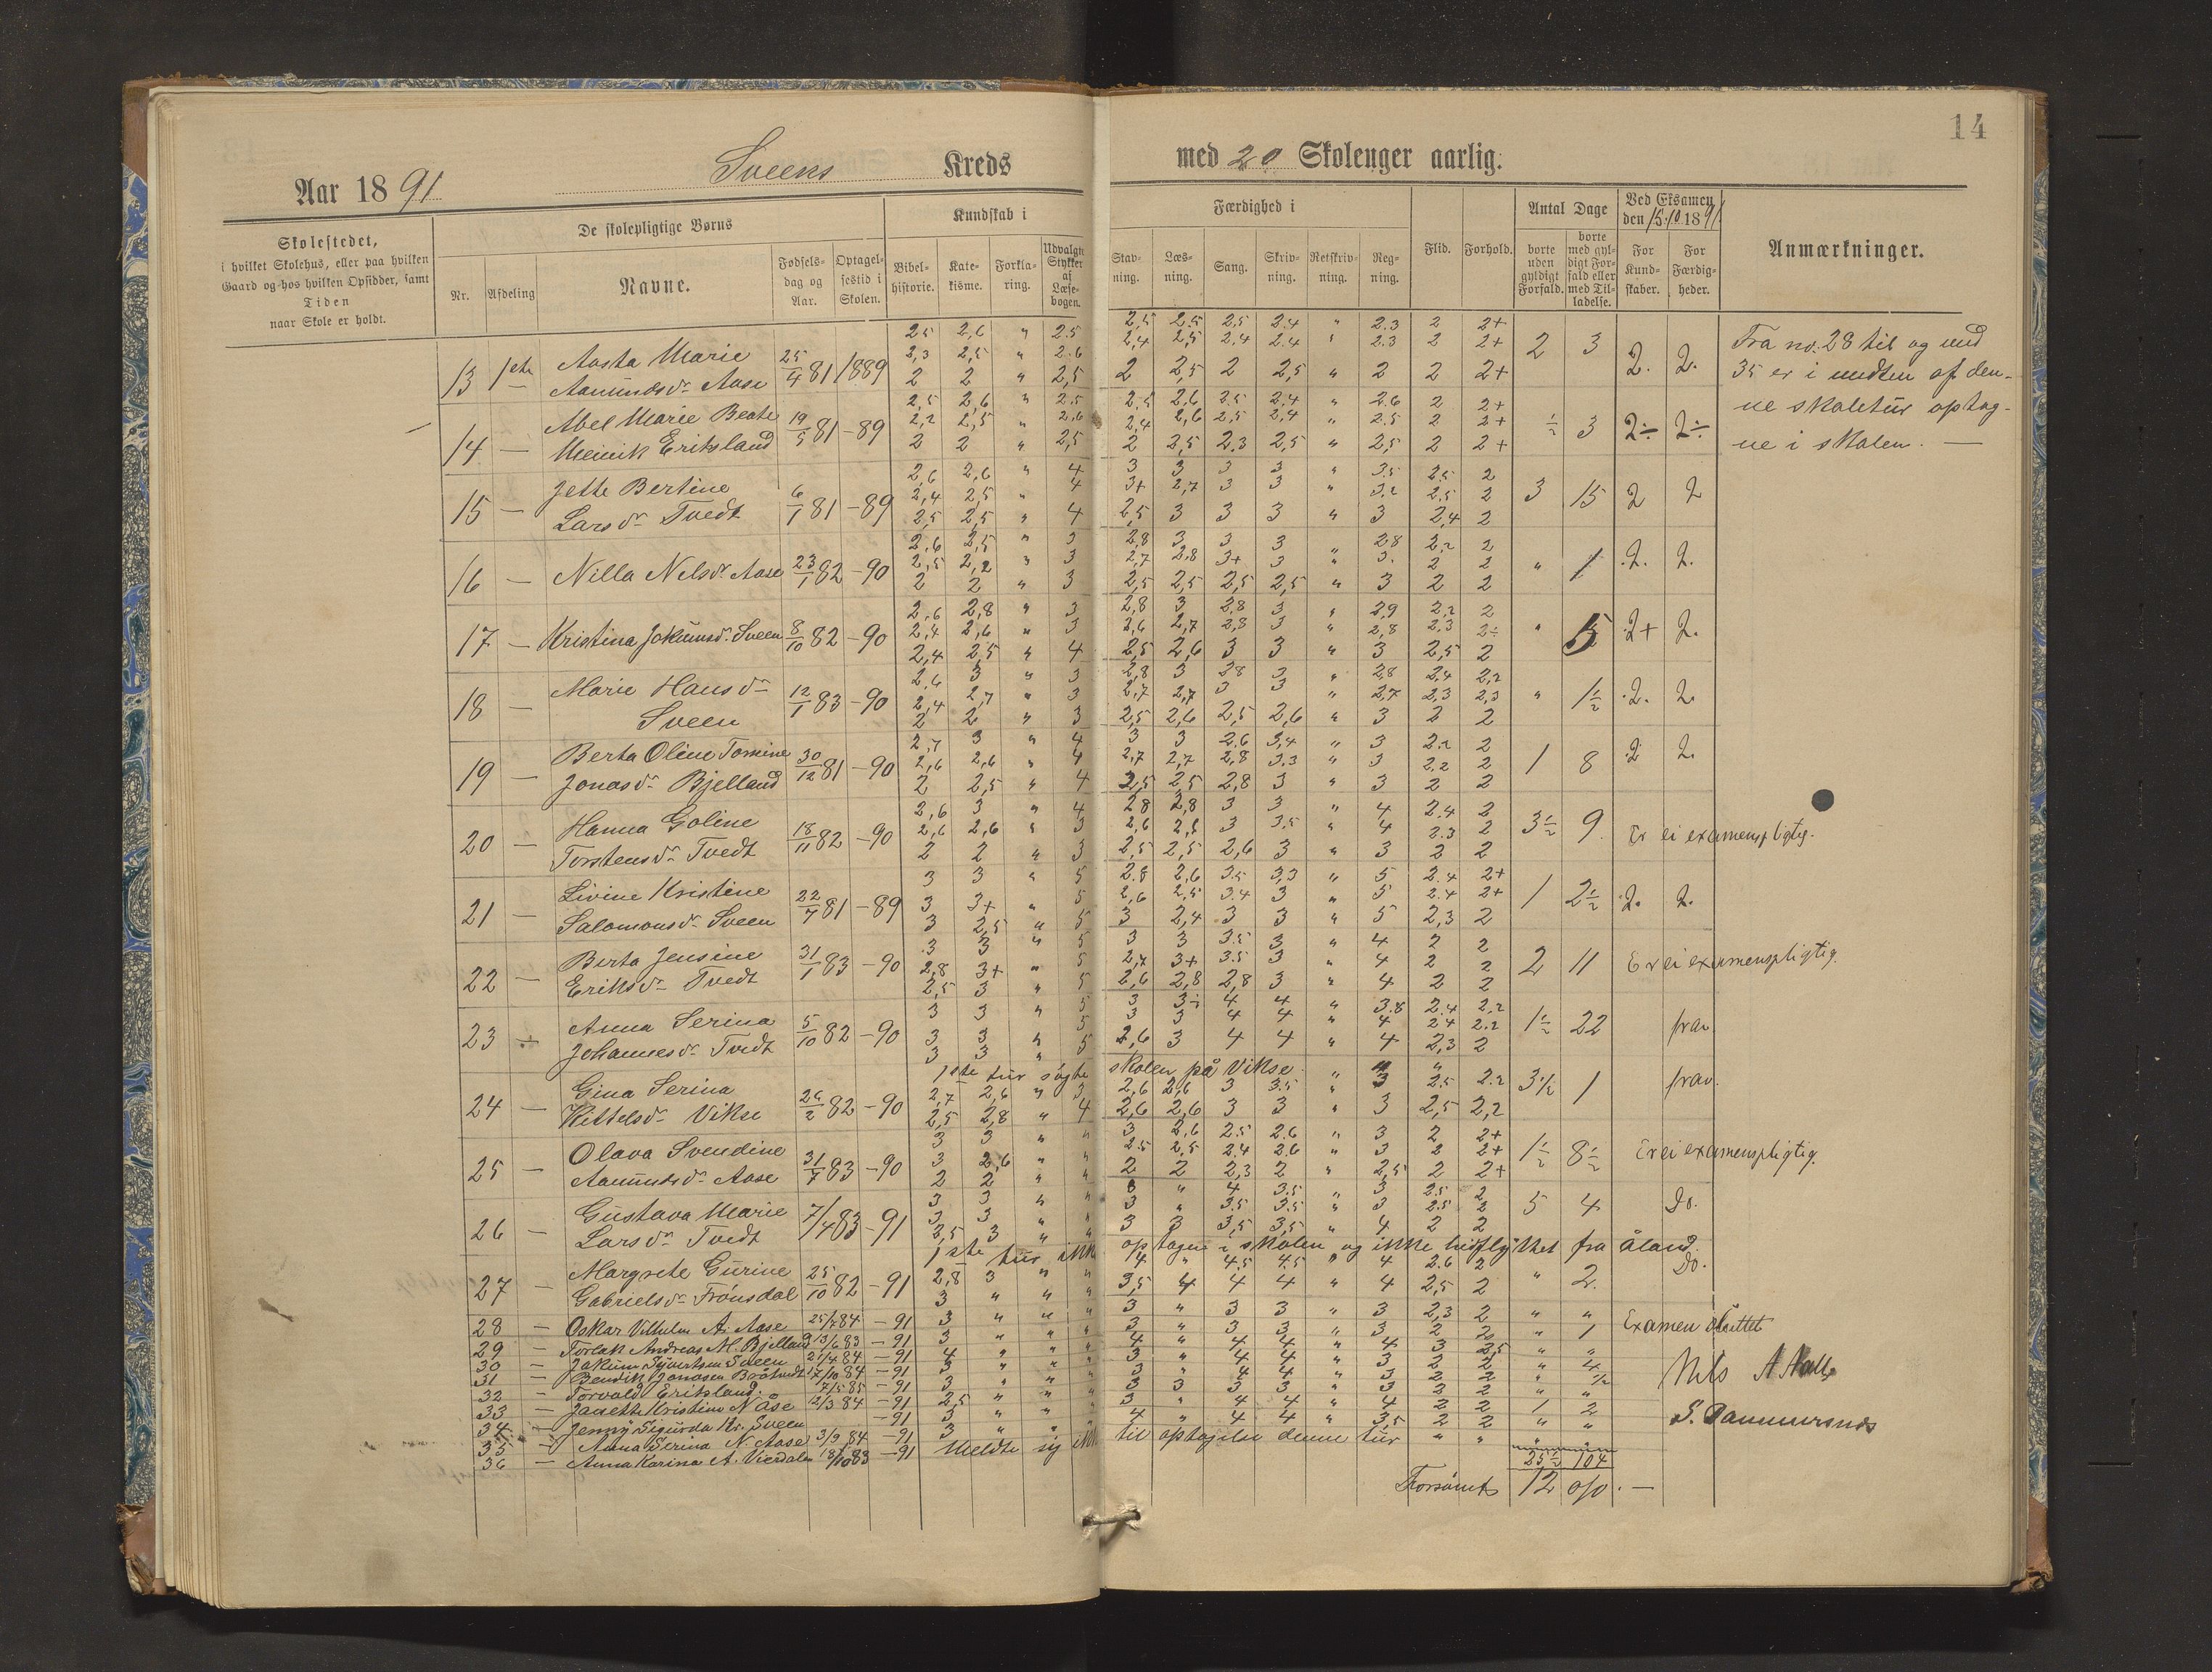 14
Aar 1891 Sveens Kreds med 20 Skoleuger aarlig.
Skolestedet,
i hvilket Skolehus, eller paa hvilken
Gaard og hos hvilken Opsidder, samt
Tiden
naar Skole er holdt.
De skolepligtige Børns
Nr. Afdeling Navne. Fødselsdag og Aar. Optagelsestid i Skolen.
Kundskab i
Bibelhistorie. Katekisme. Forklaring. Udvalgte Stykker af Læsebogen.
Færdighed i
Stavning. Læsning. Sang. Skrivning. Retskrivning. Regning.
Flid. Forhold.
Antal Dage
borte uden gyldigt Forfald. borte med gyldigt Forfald eller med Tilladelse.
Ved Eksamen
den 15/10 1891
For Kundskaber. For Færdigheder.
Anmærkninger.
2.5 2,6 " 2.5 2,5 2.5 2,5 2.4 " 2.3 2 2+
2,3 2,5 " 2.6 2,4 2,5 2.4 2.4 " 2.3 2 2+
13 1ste Aasta Marie Aamundsdr Aase 25/4 81 1889 2 2 " 2,5 2 2,5 2 2,5 " 2 2 2+ 2 3 2. 2.
Fra no. 28 til og med
35 er i midten af den-
ne skoletur optag-
ne i skolen. —
2,5 2,6 " 2.5 2.5 2.6 2.5 2.4 " 2.6 2 2+
2,2 2,5 " 2.6 2,4 2,6 2,5 2,4 " 2.5 2 2+
14 — Abel Marie Beate Meinik Eriksland 19/5 81 - 89 2 2 " 2,5 2 2,5 2.3 2,5 " 2,5 2 2+ ½ 3 2÷ 2÷
2,6 2,6 " 4 3 3 3 3 " 3.5 2.5 2
2,4 2,5 " 4 3+ 2,7 3 3 " 3.2 2.5 2
15 — Jette Bertine Larsdr Tvedt 6/1 81 - 89 2,5 2,5 " 4 2,5 3 3 3 " 3 2,4 2 3 15 2 2
2,6 2,5 " 3 2,8 3 3 3 " 2.8 2,2 2
2,5 2,2 " 3 2,7 2.8 3+ 3 " 3. 2 2
16 — Nilla Nelsdr Aase 23/1 82 - 90 2 2 " 3 2,5 2,5 2,5 2,5 " 3 2 2 " 1 2. 2.
2,6 2,8 " 3 2,8 3 2,8 3 " 2,9 2,2 2
2,4 2,6 " 3 2,6 2,7 2,8 3 " 2,8 2.3 2÷
17 — Kristina Jokumsdr Sveen 8/10 82 - 90 2,4 2,5 " 4 2,5 2,6 3 3 " 3 2,5 2 " 5 2+ 2.
2.6 3 " 3 2,8 3 2.8 3 " 2.8 2.4 2,2
2,4 2,7 " 3 2,7 2,7 3 3 " 2,7 2.3 2,3
18 — Marie Hansdr Sveen 12/1 83 - 90 2 2 " 3 2,5 2,6 2,5 2,6 " 3 2 2 " 1½ 2. 2.
2,7 3 " 4 3 3 2.6 3,4 " 3 2.2 2
2,6 2,6 " 4 2,7 2,7 2,8 3.3 " 3 2.2 2
19 — Berta Oline Tomine Jonasdr Bjelland 30/12 81 - 90 2 2,5 " 4 2,5 2,5 2,8 3 " 3 2 2 1 8 2 2.
2,6 3 " 4 2.8 2,8 3 3 " 4 2.4 2
2,6 2,6 " 3 2,6 2,8 3 3.5 " 4 2.3 2
20 — Hanna Goline Torstensdr Tvedt 18/11 82 - 90 2 2 " 3 2,5 2,5 2,6 3 " 3 2 2 3½ 9 Er ei examenspligtig.
3 3 " 5 2.8 2,6 3.5 3,3 " 5 2.4 2+
3 3+ " 5 2,6 2,5 3.4 3 " 5 2.4 2+
21 — Livine Kristine Salomonsdr Sveen 22/7 81 - 89 3 2,5 " 5 3 2,4 3 3 " 5 2,3 2 1 2½ 2. 2.
3 3 " 5 3 3 3.5 3 " 4 2 2
2,8 3+ " 5 2,7 3+ 3.5 3 " 4 2 2
22 — Berta Jensine Eriksdr Tvedt 31/1 83 - 90 2,5 3 " 5 2,6 2,8 2,8 3 " 4 2 2 2 11 Er ei examenspligtig.
3 3 " 5 3 3÷ 4 4 " 3.8 2.4 2.2
3 3 " 5 3 3 4 4 " 4 2.4 2.2
23 — Anna Serina Johannesdr Tvedt 5/10 82 - 90 3 3 " 5 2,6 3 4 4 " 4 2,3 2 1½ 22 frav
1ste tur søgte skolen på Vikse " " "
2,7 2,6 " 3 2,6 2,6 3 3.5 " 3 2.5 2.2
24 — Gina Serina Kittelsdr Vikse 26/2 82 - 90 2,5 2,8 " 4 2,6 2,6 3 3 " 3 2,5 2,2 3½ 1 frav.
3 3 " " 3 2,6 2.5 2.6 " 3 2 2+
3 2,6 " " 2.5 2,5 2.4 2.6 " 3 2 2+
25 — Olava Svendine Aamundsdr Aase 31/7 83 - 90 2 2 " " 2 2 2,3 2 " 2,5 2 2+ 1½ 8½ Er ei examenspligtig.
3 3 " " 3 " 4 3.5 " 3 2.5 2
3 3 " " 3 " 3.5 3.5 " 3 2.5 2
26 — Gustava Marie Larsdr Tvedt 7/4 83 - 91 2,5 3 " " 3 3 3,5 3,5 " 4 2 2 5 4 Do.
1ste tur ikke optagen i skolen og ikke hidflyttet fra Åland.
2,8 3 " " 4 " 4.5 4.5 " 4 2.6 2 Do.
27 — Margrete Gurine Gabrielsdr Frønsdal 25/10 82 - 91 3 " " " 3,5 4 4 4 " 4 2,5 2 " 2.
28 — Oskar Vilhelm A. Aase 25/7 84 - 91 3 " " " 3 " 3 3 " 3 2,3 2 " " Examen sluttet
29 — Torlak Andreas M. Bjelland 13/6 83 - 91 3 " " " 3 " 3 3 " 3 2 2 " 1
30 — Jakum Syvertsen Sveen 21/4 84 - 91 4 " " " 4 " 4 4 " 4 3 2,5 " "
31 — Bendik Jonasen Bråtvedt 17/10 84 - 91 3 " " " 3 " 4 4 " 3 2 2 " 4 Nils A
32 — Torvald Eriksland. 7/5 85 - 91 3 " " " 3 " 4 4 " 3 2 2 " ½
33 — Janette Kristine N Åse 12/3 84 - 91 2,5 " " " 3 3 3 3 " 3 2 2 " "
34 — Jenny Sigurda Kr. Sveen - 91 3 " " " 3 " 4 4 " 4 2 2 1 2 S.
35 — Anna Serina N. Aase 3/9 84 - 91 3 " " " 4 " 4 4 " 3,5 2 2 " "
36 — Anna Karina A. Vierdalen 18/10 83 - 91 Meldte sig ikke til optagelse denne tur " " " "
25½ 104
Forsømt 12 o/o. —